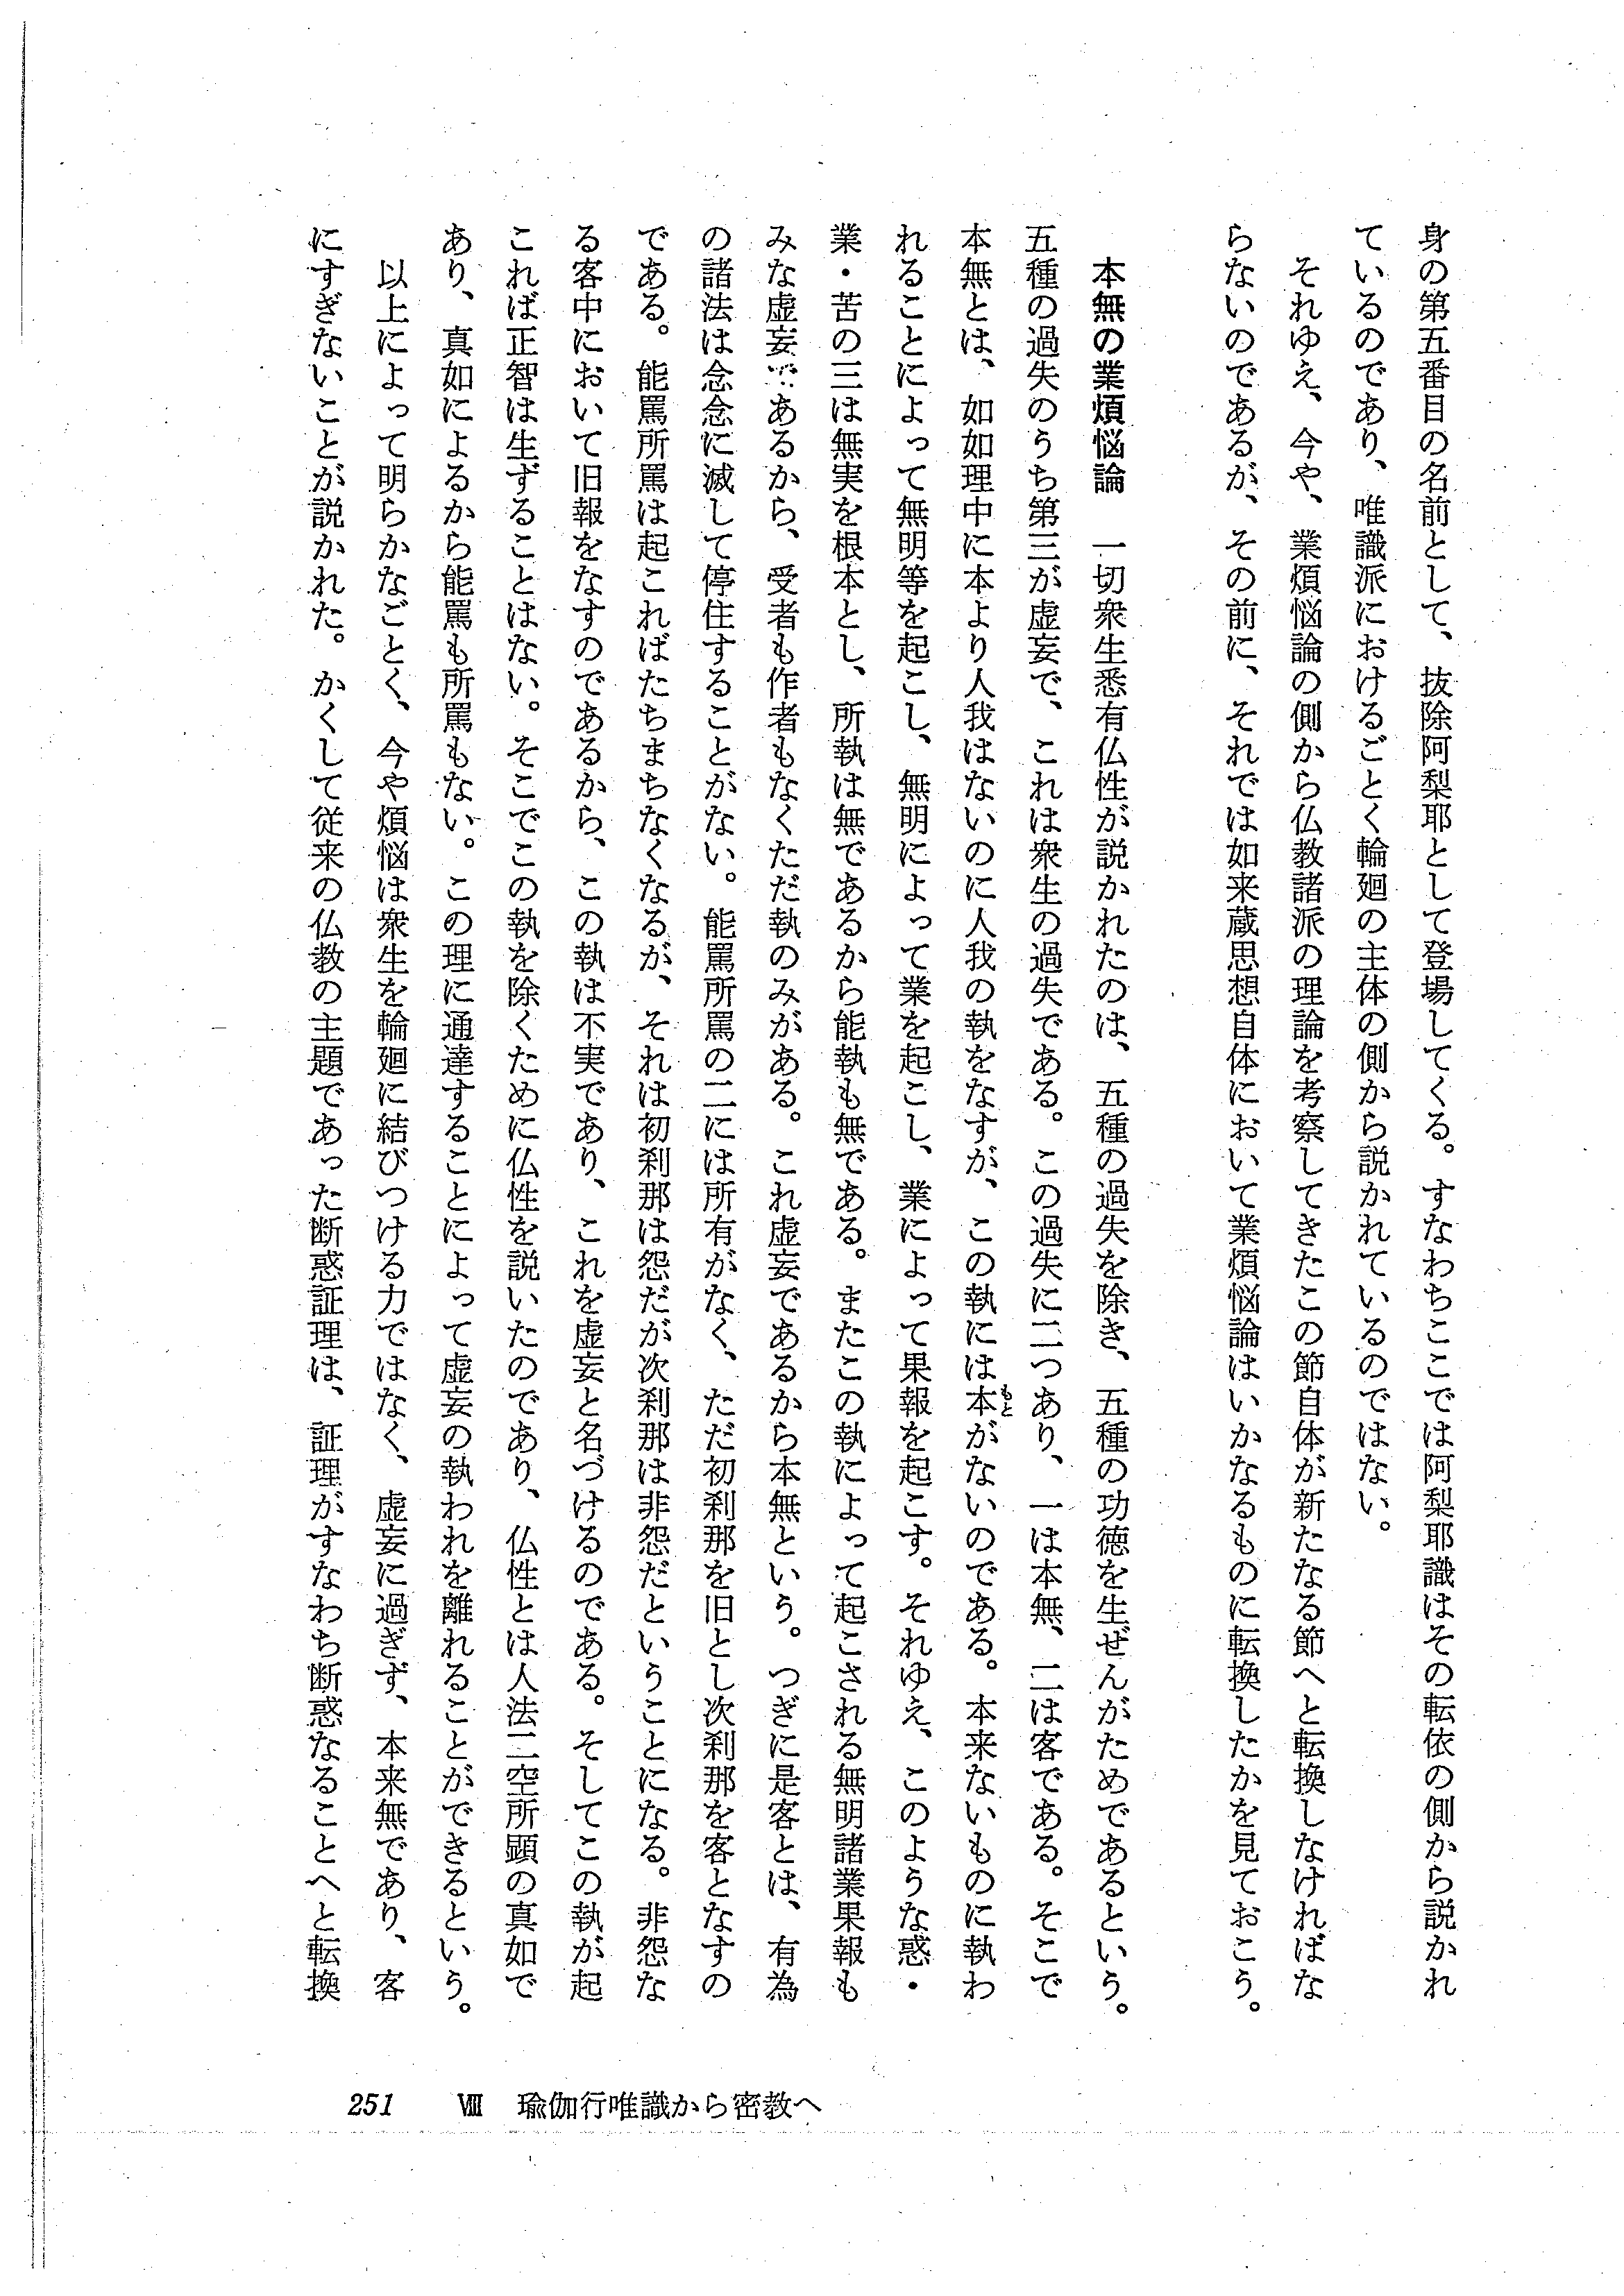 身の第五番目の名前として、抜除阿梨耶として登場してくる。すなわちここでは阿梨耶識はその転依の側から説かれ
ているのであり、唯識派におけるごとく輪廻の主体の側から説かれているのではない。
それゆえ、今や、業煩悩論の側から仏教諸派の理論を考察してきたこの節自体が新たなる節へと転換しなければな
らないのであるが、その前に、それでは如来蔵思想自体において業煩悩論はいかなるものに転換したかを見ておこう。
本無の業煩悩論　一切衆生悉有仏性が説かれたのは、五種の過失を除き、五種の功徳を生ぜんがためであるという。
五種の過失のうち第三が虚妄で、これは衆生の過失である。この過失に二つあり、一は本無、二は客である。そこで
本無とは、如如理中に本より人我はないのに人我の執をなすが、この執には本もとがないのである。本来ないものに執わ
れることによって無明等を起こし、無明によって業を起こし、業によって果報を起こす。それゆえ、このような惑・
業・苦の三は無実を根本とし、所執は無であるから能執も無である。またこの執によって起こされる無明諸業果報も
みな虚妄であるから、受者も作者もなくただ執のみがある。これ虚妄であるから本無という。つぎに是客とは、有為
の諸法は念念に滅して停住することがない。能罵所罵の二には所有がなく、ただ初刹那を旧とし次刹那を客となすの
である。能罵所罵は起こればたちまちなくなるが、それは初刹那は怨だが次刹那は非怨だということになる。非怨な
る客中において旧報をなすのであるから、この執は不実であり、これを虚妄と名づけるのである。そしてこの執が起
これば正智は生ずることはない。そこでこの執を除くために仏性を説いたのであり、仏性とは人法二空所顕の真如で
あり、真如によるから能罵も所罵もない。この理に通達することによって虚妄の執われを離れることができるという。
以上によって明らかなごとく、今や煩悩は衆生を輪廻に結びつける力ではなく、虚妄に過ぎず、本来無であり、客
にすぎないことが説かれた。かくして従来の仏教の主題であった断惑証理は、証理がすなわち断惑なることへと転換
251　Ⅷ　瑜伽行唯識から密教へ